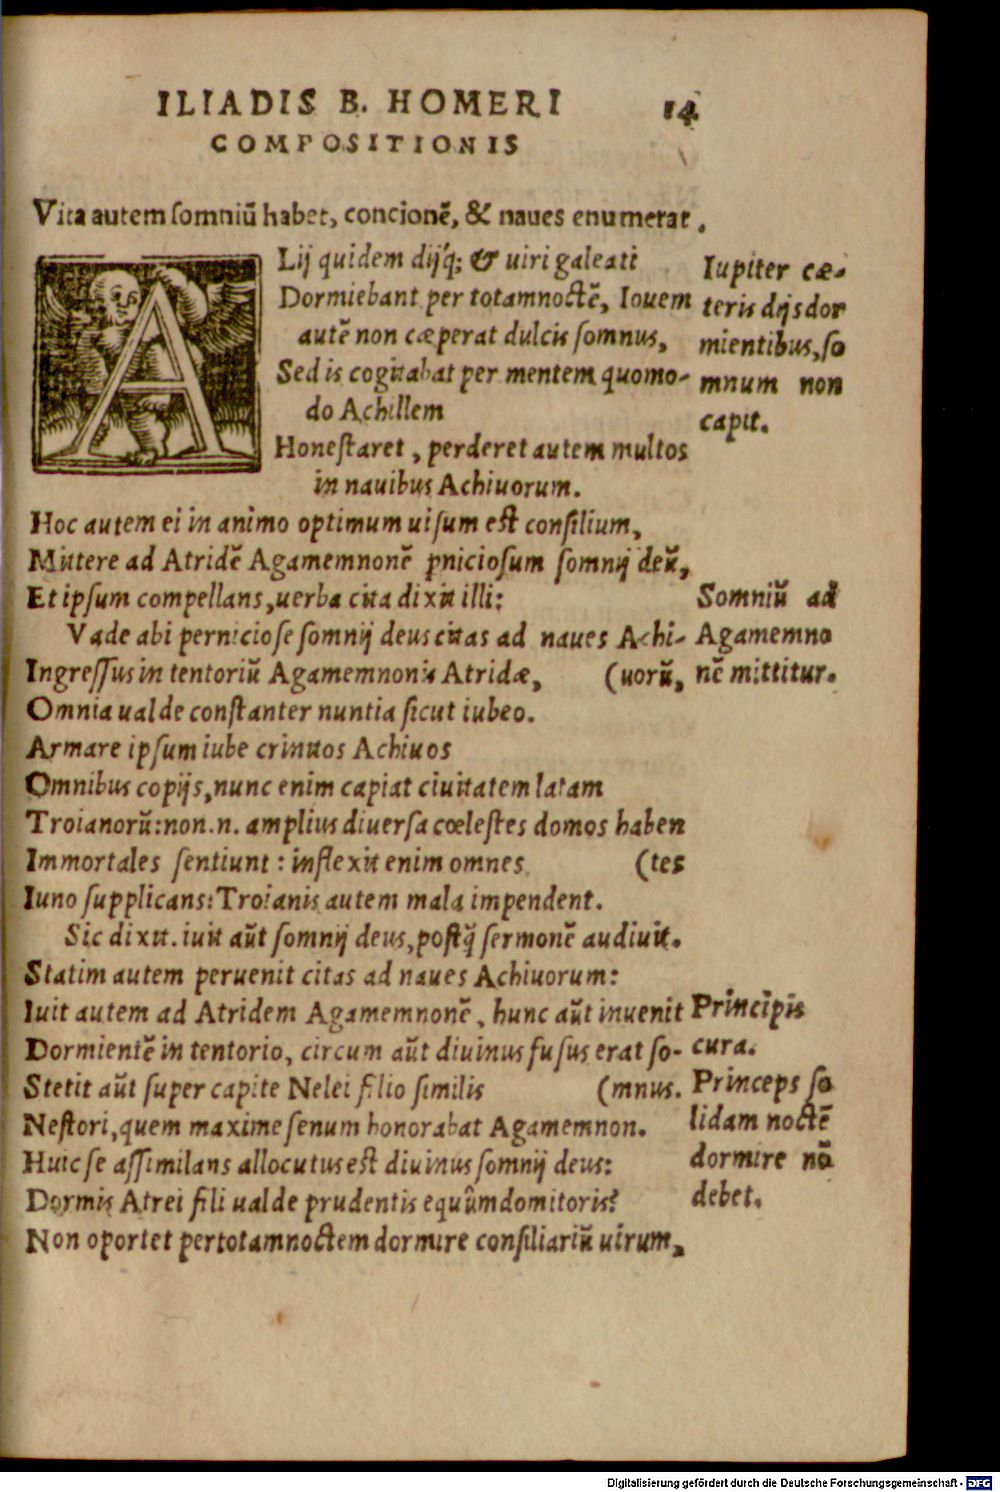 ILIADIS B. HOMERI 14
COMPOSITIONIS
Vita autem somniũ habet, concionẽ, & naues enumerat.
ALij quidem dijq́; & uiri galeati
Dormiebant per totamnoctẽ, Iouem
autẽ non cæperat dulcis somnus,
Sed is cogitabat per mentem quomo-
do Achillem
Honestaret, perderet autem multos
in nauibus Achiuorum.
Hoc autem ei in animo optimum uisum est consilium,
Mittere ad Atridẽ Agamemnonẽ ꝑniciosum somnij deũ,
Et ipsum compellans, uerba cita dixit illi:
Vade abi perniciose somnij deus citas ad naues Achi-
Ingressus in tentoriũ Agamemnonis Atridæ, (uorũ,
Omnia ualde constanter nuntia sicut iubeo.
Armare ipsum iube crinitos Achiuos
Omnibus copijs, nunc enim capiat ciuitatem latam
Troianorũ: non.n. amplius diuersa cœlestes domos haben
Immortales sentiunt: inflexit enim omnes (tes
Iuno supplicans: Troianis autem mala impendent.
Sic dixit. iuit aũt somnij deus, postq̃ sermonẽ audiuit.
Statim autem peruenit citas ad naues Achiuorum:
Iuit autem ad Atridem Agamemnonẽ, hunc aũt inuenit
Dormientẽ in tentorio, circum aũt diuinus fusus erat so-
Stetit aũt super capite Nelei filio similis (mnus.
Nestori, quem maxime senum honorabat Agamemnon.
Huic se assimilans allocutus est diuinus somnij deus:
Dormis Atrei fili ualde prudentis equûm domitoris?
Non oportet pertotamnoctem dormire consiliariũ uirum,
Iupiter cæ-
teris dijs dor
mientibus, so
mnum non
capit.
Somniũ ad
Agamemno
nẽ mittitur.
Principis
cura.
Princeps so
lidam noctẽ
dormire nõ
debet.
Digitalisierung gefördert durch die Deutsche Forschungsgemeinschaft - DFG